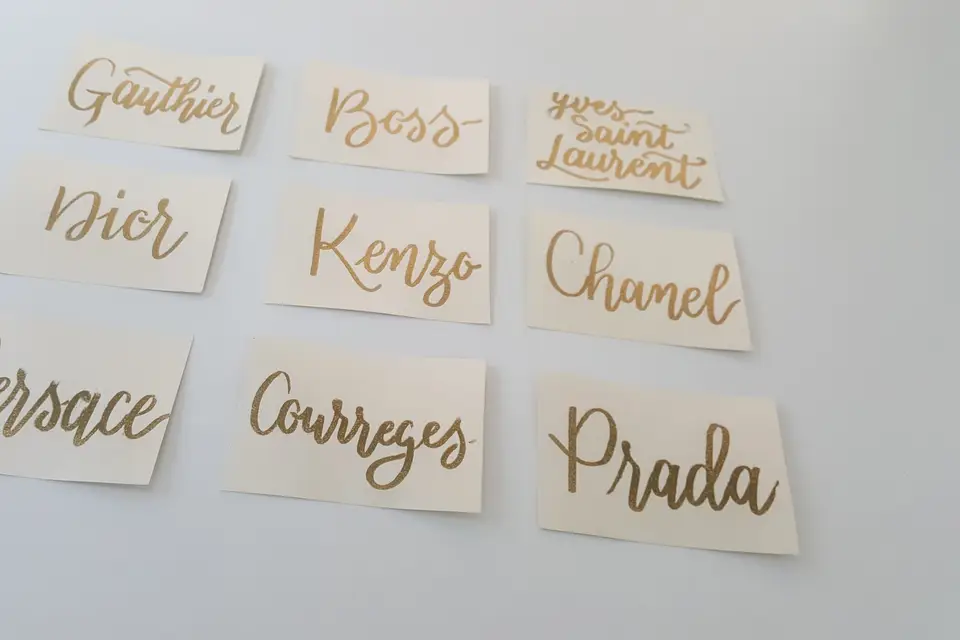 Gauthier
Boss
yves
Saint
Laurent
Dior
Kenzo
Chanel
ersace
Courreges
Prada